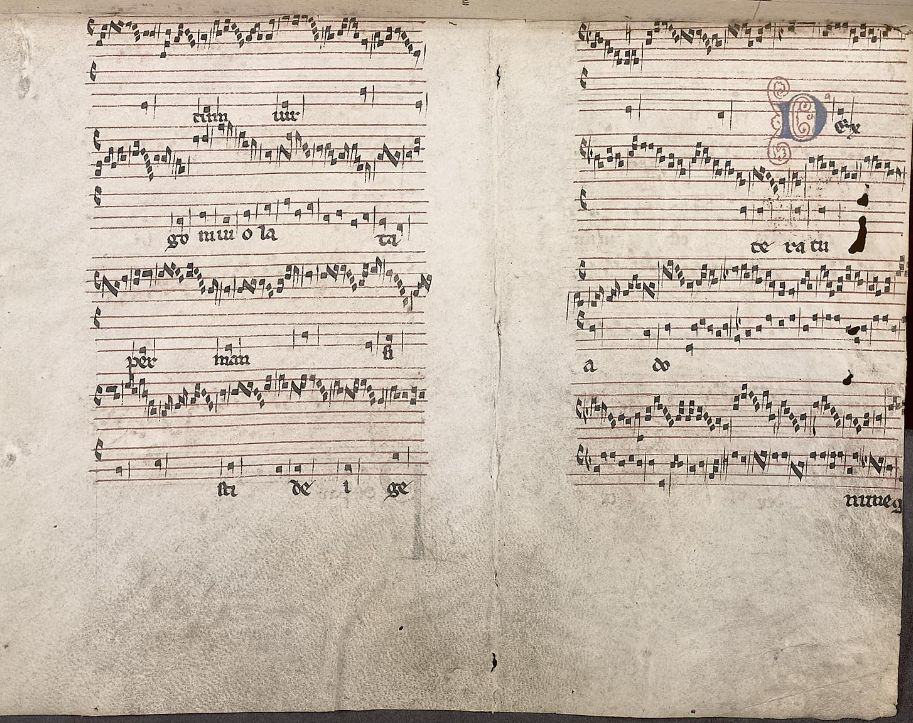 tum iur
go inui o la ta
per man si
sti de i ge
Dex
te ra tu
a do